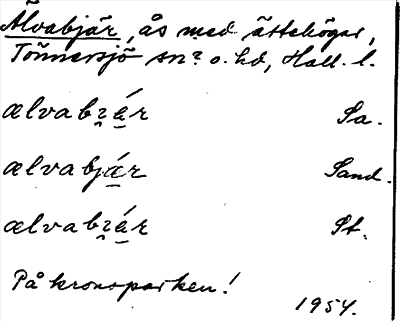 Älvabjär, ås med ättehögar,
Tönnersjö sn? o. hd, Hall. l.
ælvabɪ̯ár Sa.
ælvabjár Sand.
ælvabɪ̯ár St.
På kronoparken!
1954.